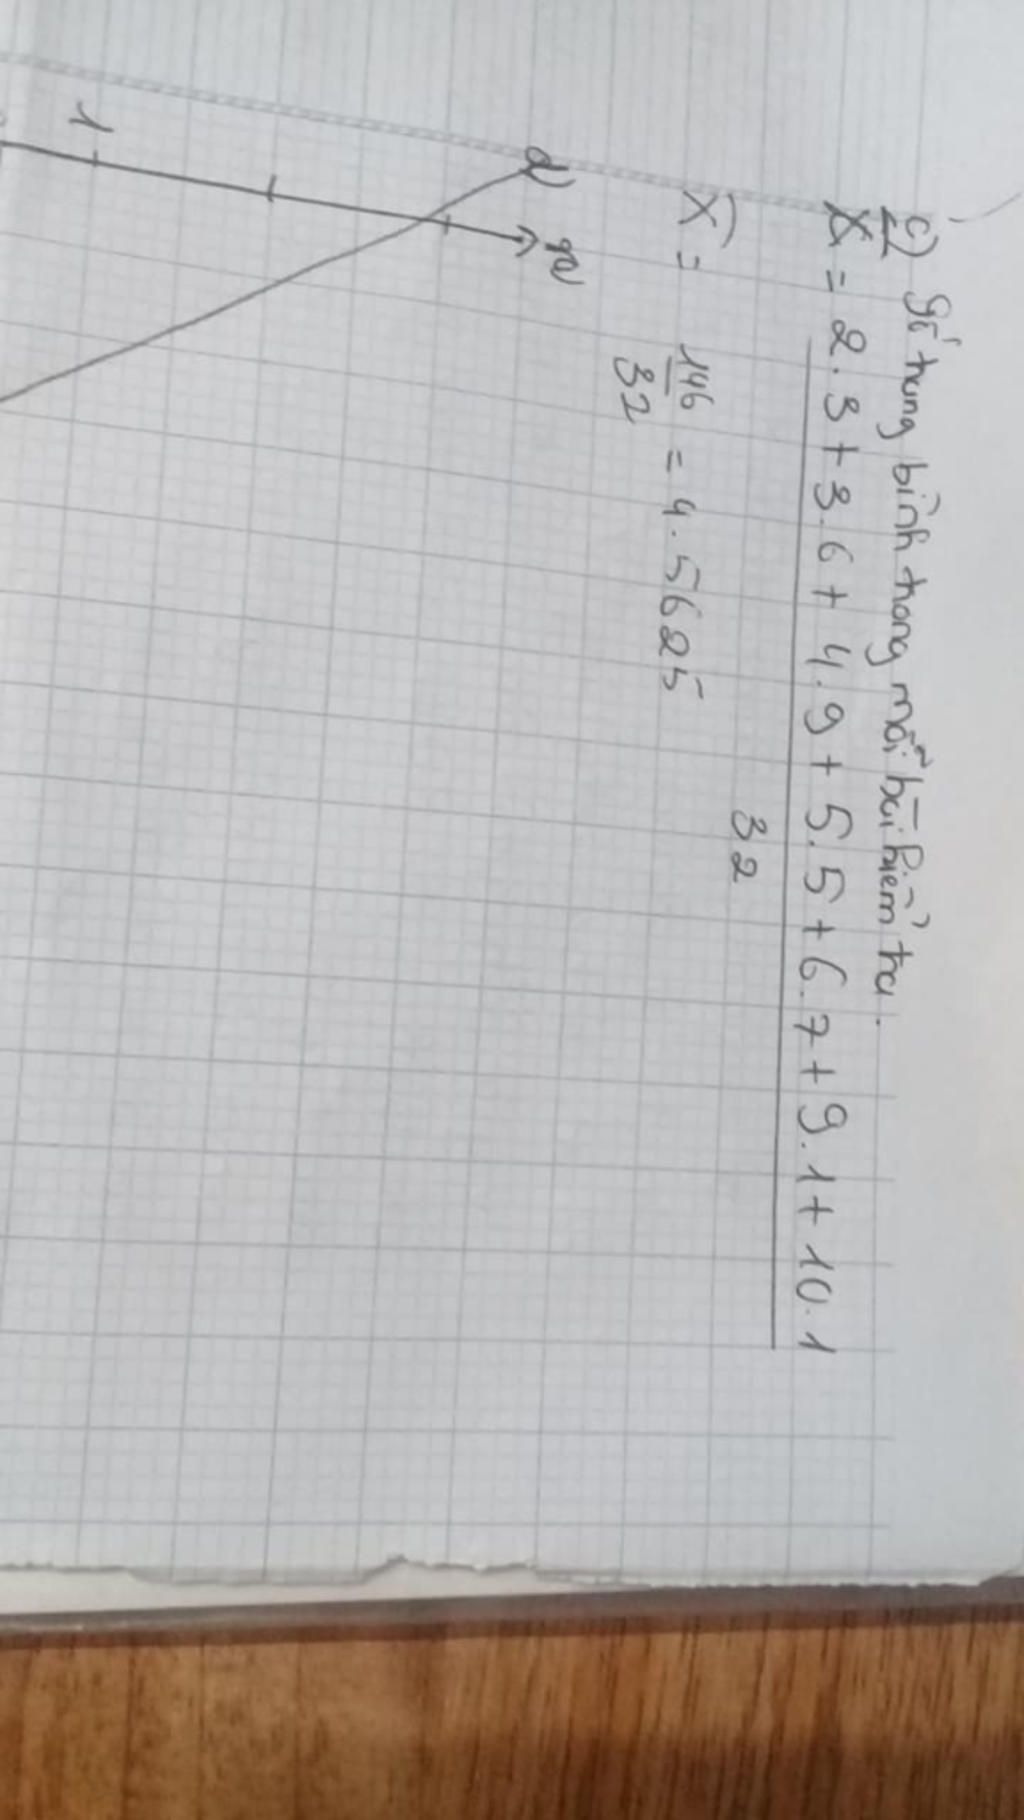 c) số trung bình trong mỗi bài kiểm tra.
X = 2.3+3.6+4.9+5.5+6.7+9.1+10.1
32
X = 146 = 4.5625
32
d
n
1